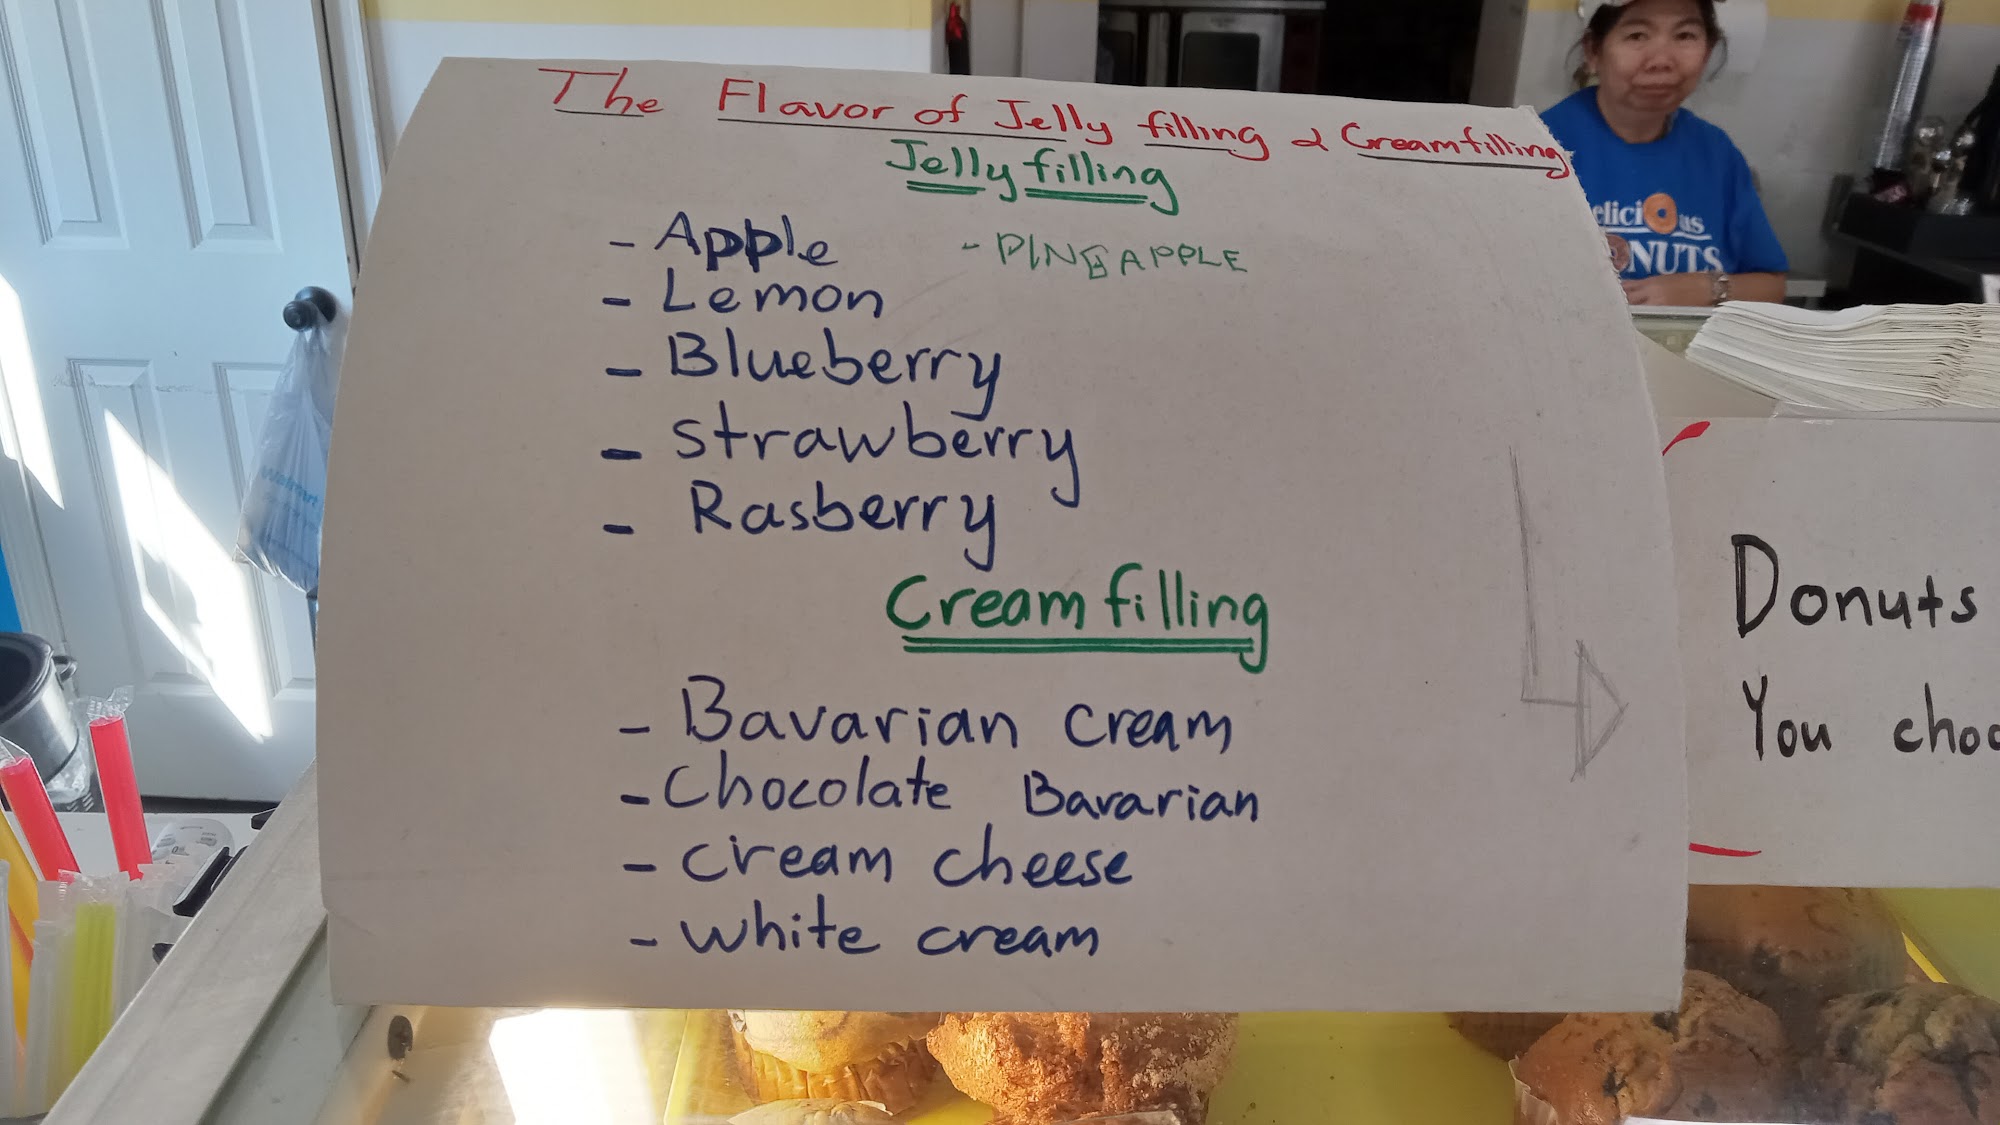 The Flavor of Jelly filling & Creamfilling
Jelly filling
- Apple - PINEAPPLE
- Lemon
- Blueberry
- strawberry
- Rasberry
Cream filling
- Bavarian cream
- Chocolate Bavarian
- cream cheese
- white cream
Donuts
You choo
elicious
NUTS
Walmart